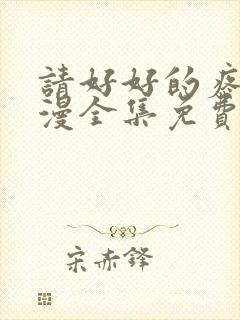 請好好的疼
漫全集免費
宋赤鋒